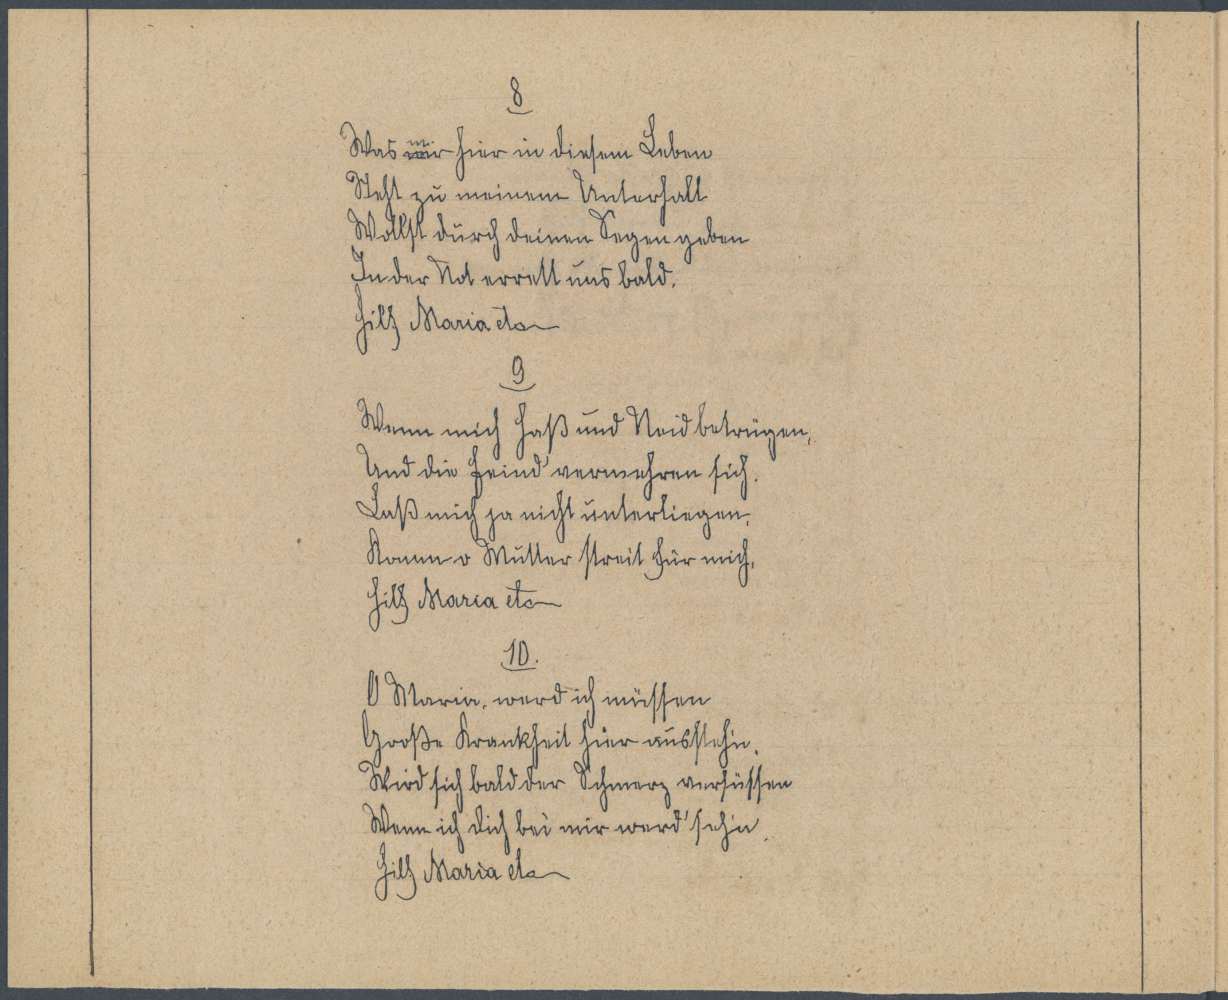 8
Was mir hier in diesem Leben
Steht zu meinem Unterhalt
Wollst durch deinen Segen geben
In der Not errett uns bald.
Hilf Maria etc
9
Wenn mich Haß und Neid betrügen,
Und die Feind' vermehren sich.
Laß mich ja nicht unterliegen,
Komm o Mutter streit für mich,
Hilf Maria etc
10.
O Maria, werd ich müssen
Große Krankheit hier ausstehn,
Wird sich bald der Schmerz versüssen
Wenn ich dich bei mir werd' seh'n.
Hilf Maria etc